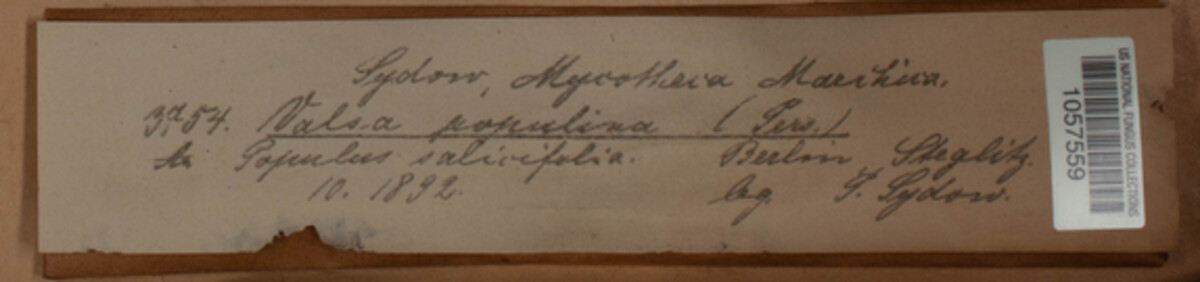 Sydow, Mycotheca Marchica.
3754. Valsa populina (Pers.)
An Populus salicifolia. Berlin, Steglitz.
10. 1892. leg. P. Sydow.
US NATIONAL FUNGUS COLLECTIONS
1057559